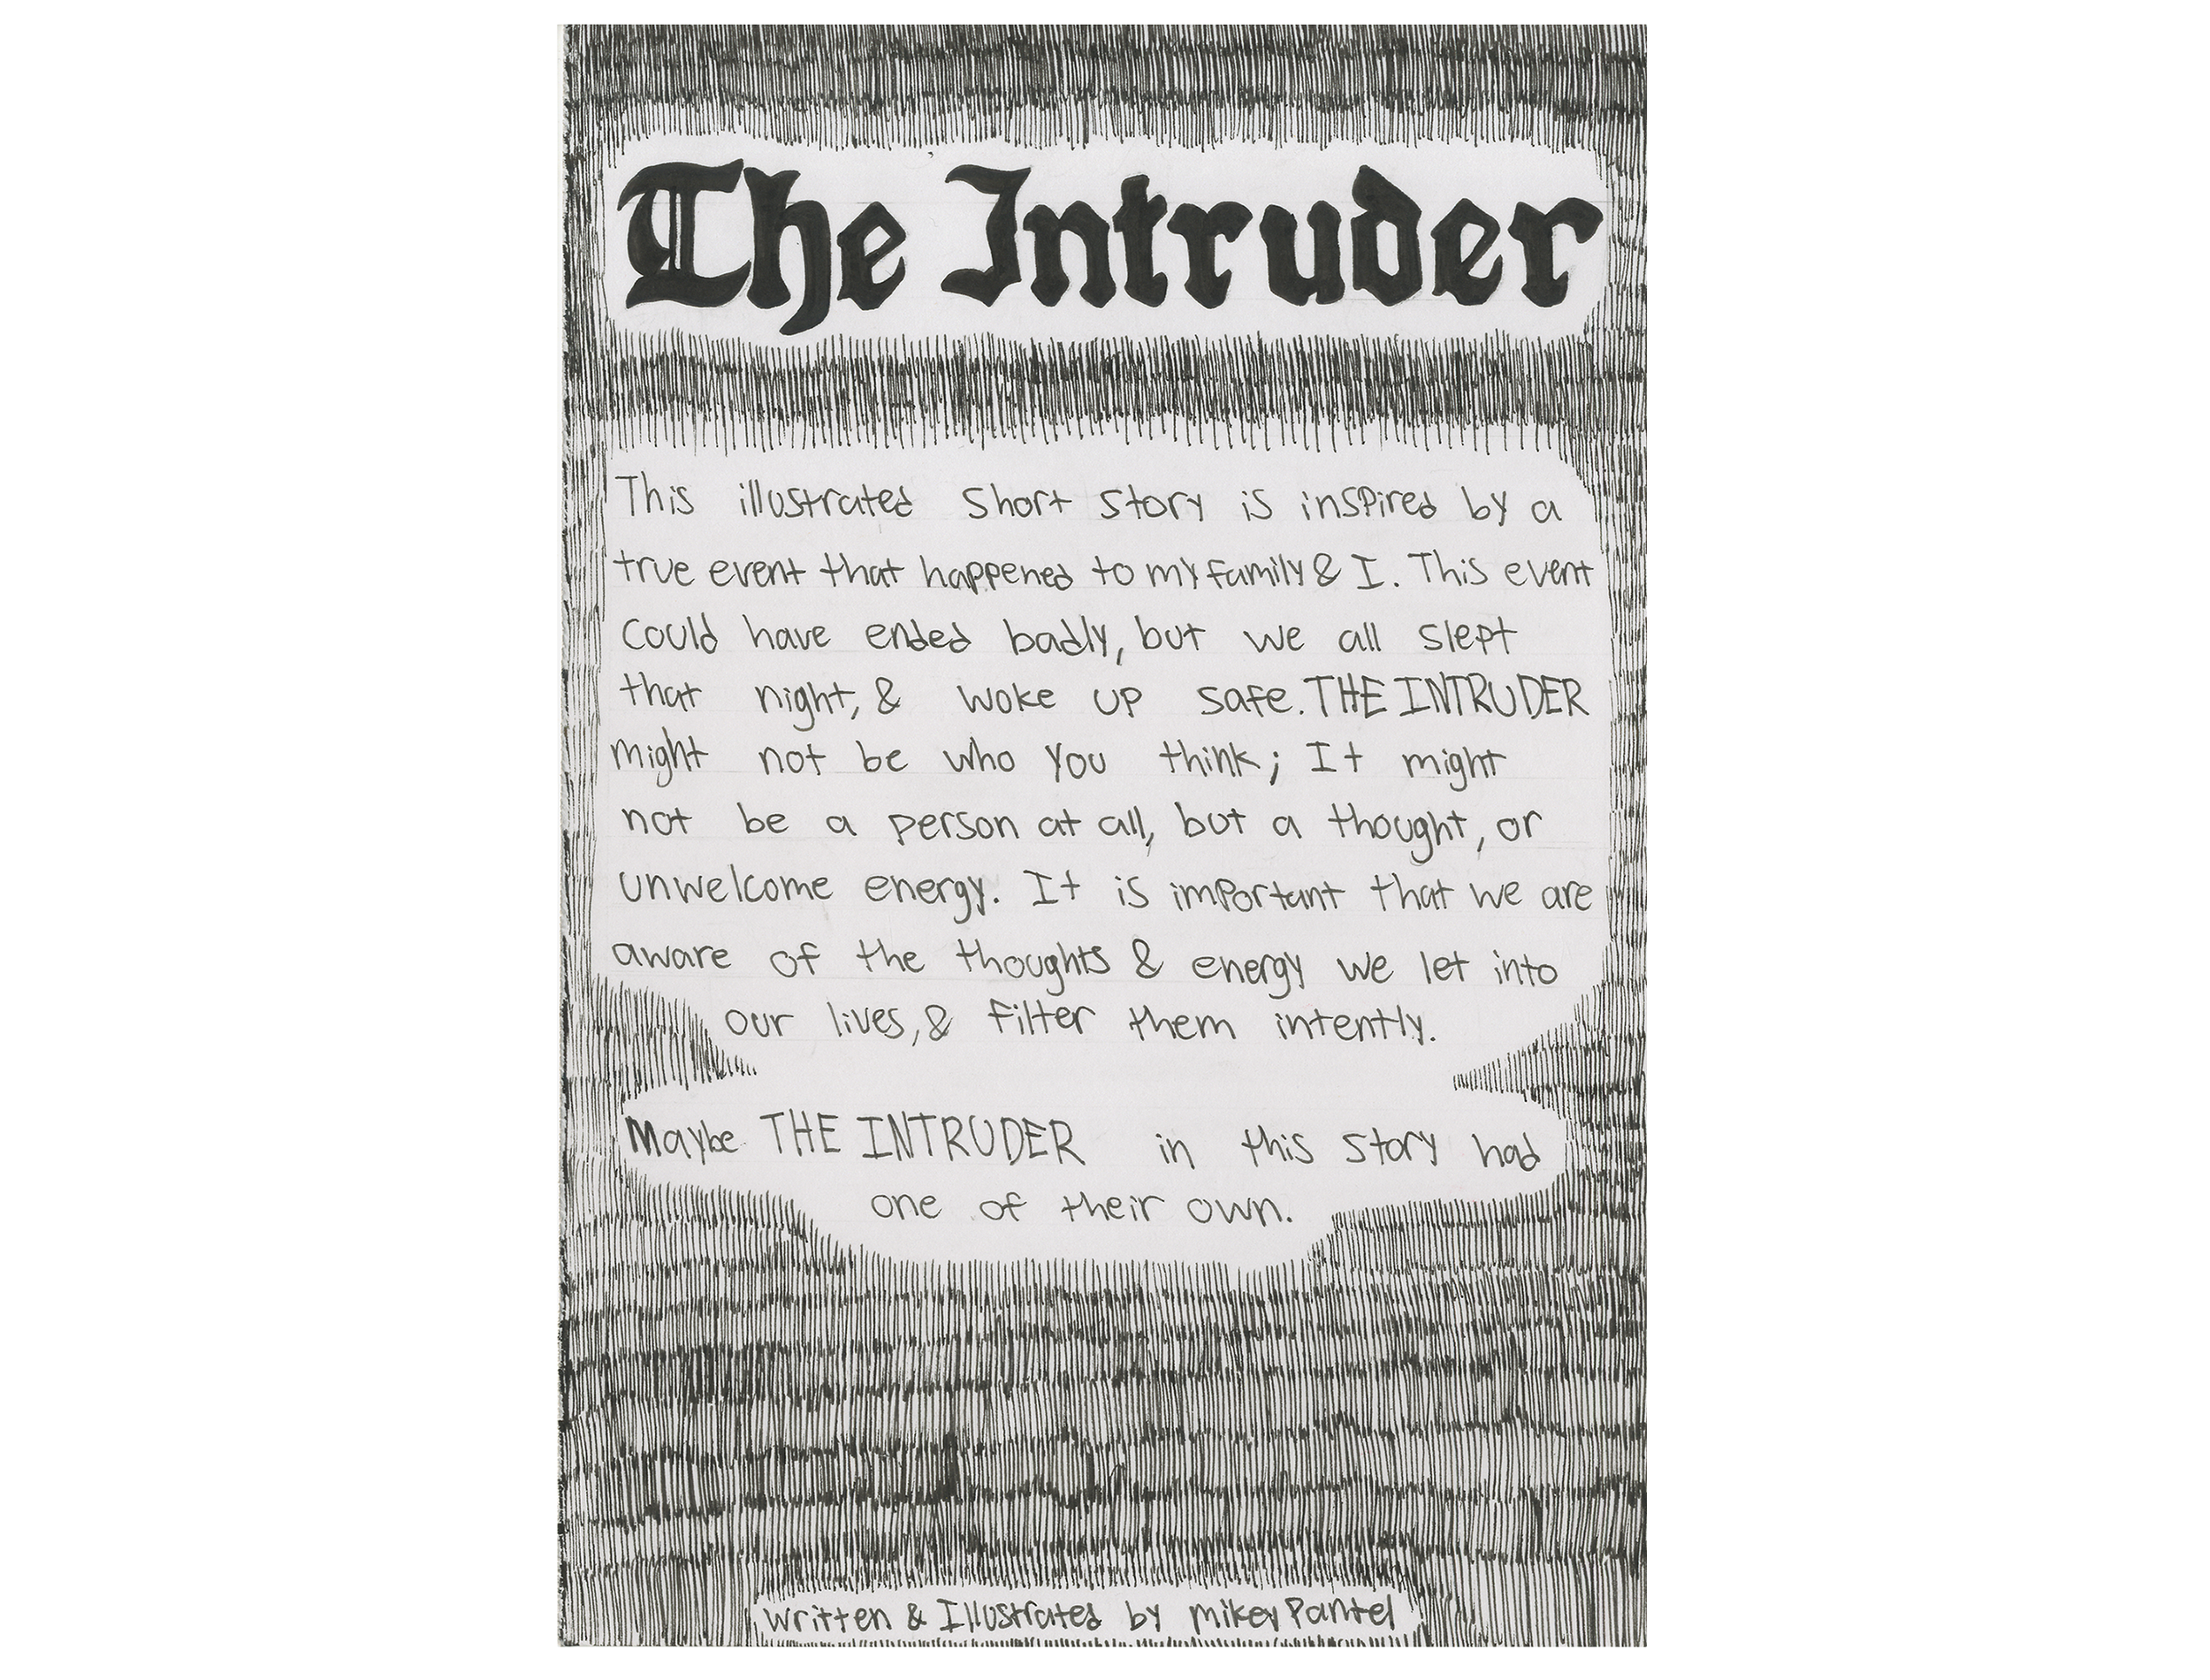 The Intruder
This illustrated short story is inspired by a
true event that happened to my family & I. This event
could have ended badly, but we all slept
that night, & woke up safe. THE INTRUDER
might not be who you think; It might
not be a person at all, but a thought, or
unwelcome energy. It is important that we are
aware of the thoughts & energy we let into
our lives, & filter them intently.
Maybe THE INTRUDER in this story had
one of their own.
written & Illustrated by mikey Pantel